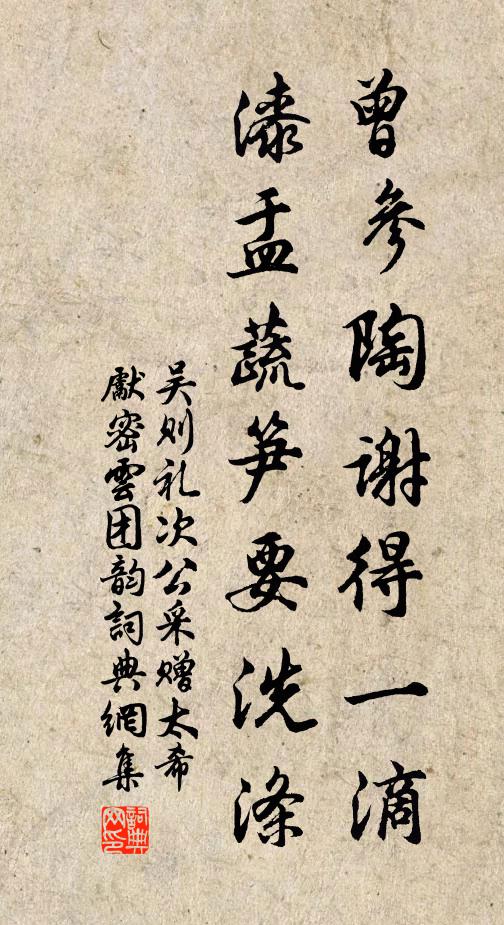 曾參陶谢得一滴
漆盂蔬笋要洗滌
吴则礼次公采赠太希
獻密雲团韵詞典網集
詞典网印